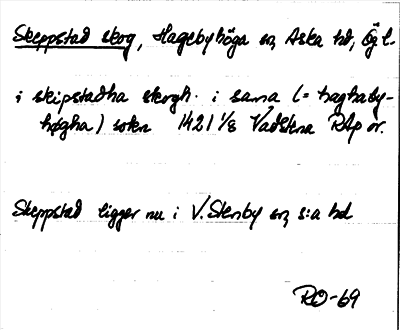 Skeppstad skog, Hagebyhöga sn, Aska hd, Ögl.
i skipstadha skogh i sama (= haghaby-
høgha) sokn 1421 1/8 Vadstena RAp or.
Skeppstad ligger nu i V. Stenby sn, s:a hd
RO-69